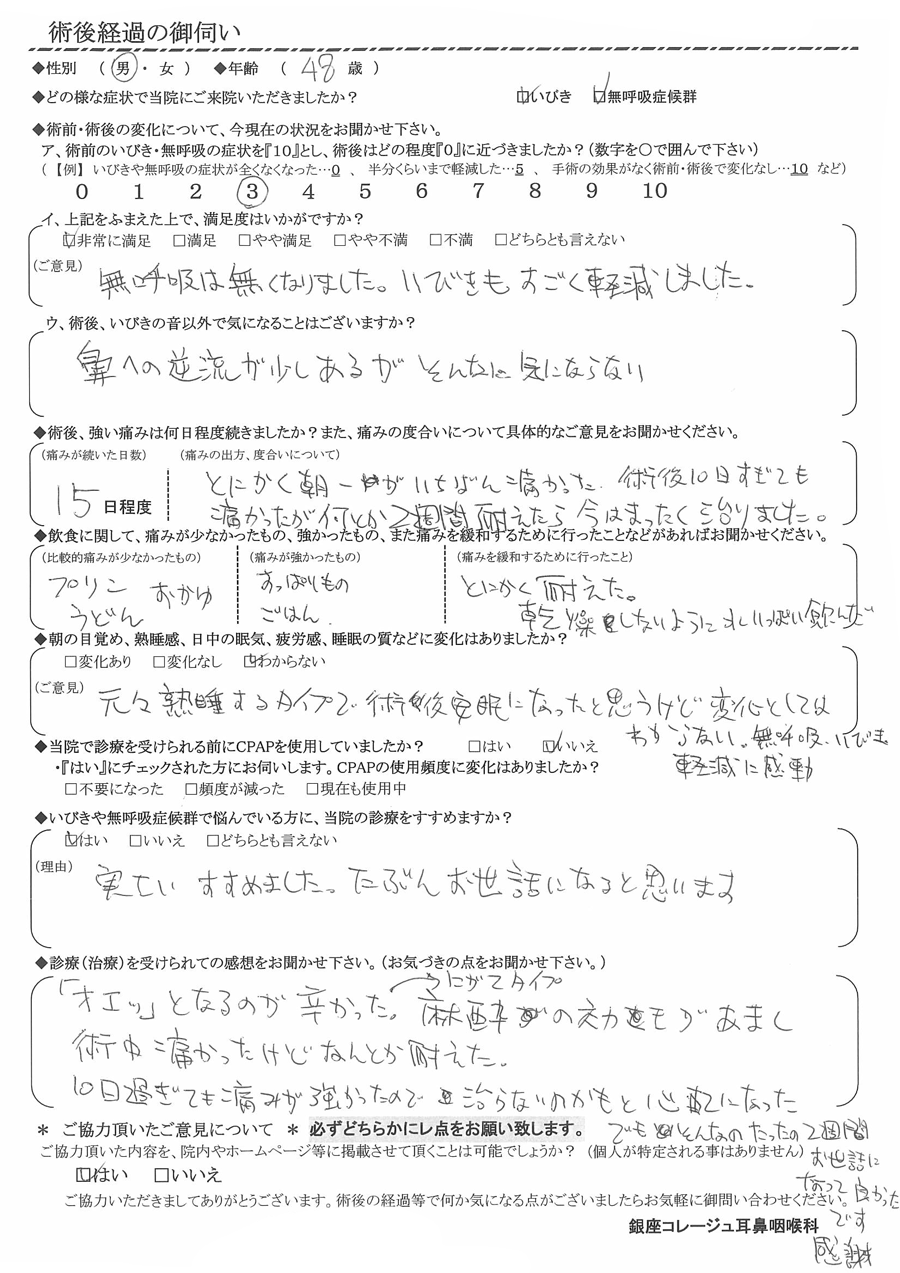 術後経過の御伺い
◆性別 （ 男 ・ 女 ） ◆年齢 （ 48 歳 ）
◆どの様な症状で当院にご来院いただきましたか？ ☑いびき ☑無呼吸症候群
◆術前・術後の変化について、今現在の状況をお聞かせ下さい。
ア、術前のいびき・無呼吸の症状を『10』とし、術後はどの程度『0』に近づきましたか？（数字を○で囲んで下さい）
（【例】 いびきや無呼吸の症状が全くなくなった…0 、 半分くらいまで軽減した…5 、 手術の効果がなく術前・術後で変化なし…10 など）
0 1 2 3 4 5 6 7 8 9 10
イ、上記をふまえた上で、満足度はいかがですか？
☑非常に満足 □満足 □やや満足 □やや不満 □不満 □どちらとも言えない
（ご意見）
無呼吸は無くなりました。いびきもすごく軽減しました。
ウ、術後、いびきの音以外で気になることはございますか？
鼻への逆流が少しあるが そんなに気にならない
◆術後、強い痛みは何日程度続きましたか？また、痛みの度合いについて具体的なご意見をお聞かせください。
（痛みが続いた日数） （痛みの出方、度合いについて）
15日程度
とにかく朝一がいちばん痛かった 術後10日すぎても
痛かったが何とか2週間耐えたら今はまったく治りました。
◆飲食に関して、痛みが少なかったもの、強かったもの、また痛みを緩和するために行ったことなどがあればお聞かせください。
（比較的痛みが少なかったもの） （痛みが強かったもの） （痛みを緩和するために行ったこと）
プリン おかゆ
うどん
すっぱいもの
ごはん.
とにかく耐えた。
乾燥しないように水いっぱい飲んだ
◆朝の目覚め、熟睡感、日中の眠気、疲労感、睡眠の質などに変化はありましたか？
□変化あり □変化なし ☑わからない
（ご意見）
元々熟睡するタイプで術後安眠になったと思うけど変化としては
わからない。無呼吸、いびき
軽減に感動
◆当院で診療を受けられる前にCPAPを使用していましたか？ □はい ☑いいえ
・『はい』にチェックされた方にお伺いします。CPAPの使用頻度に変化はありましたか？
□不要になった □頻度が減った □現在も使用中
◆いびきや無呼吸症候群で悩んでいる方に、当院の診療をすすめますか？
☑はい □いいえ □どちらとも言えない
（理由）
すすめました。たぶんお世話になると思います
◆診療（治療）を受けられての感想をお聞かせ下さい。（お気づきの点をお聞かせ下さい。）
にがてタイプ
「オエッ」となるのが辛かった。麻酔の
術中痛かったけどなんとか耐えた。
10日過ぎても痛みが強かったので治らないのかもと心配になった
でもそんなのたったの2週間
お世話に
なって良かった
です
感謝
＊ ご協力頂いたご意見について ＊ 必ずどちらかにレ点をお願い致します。
ご協力頂いた内容を、院内やホームページ等に掲載させて頂くことは可能でしょうか？（個人が特定される事はありません）
☑はい □いいえ
ご協力いただきましてありがとうございます。術後の経過等で何か気になる点がございましたらお気軽に御問い合わせください。
銀座コレージュ耳鼻咽喉科